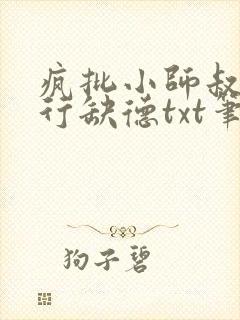 疯批小师叔
行缺德txt笔
狗子碧